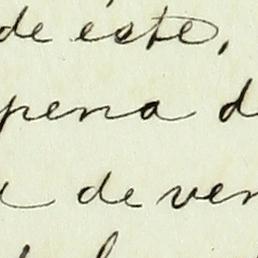 de este,
pena d
de ven